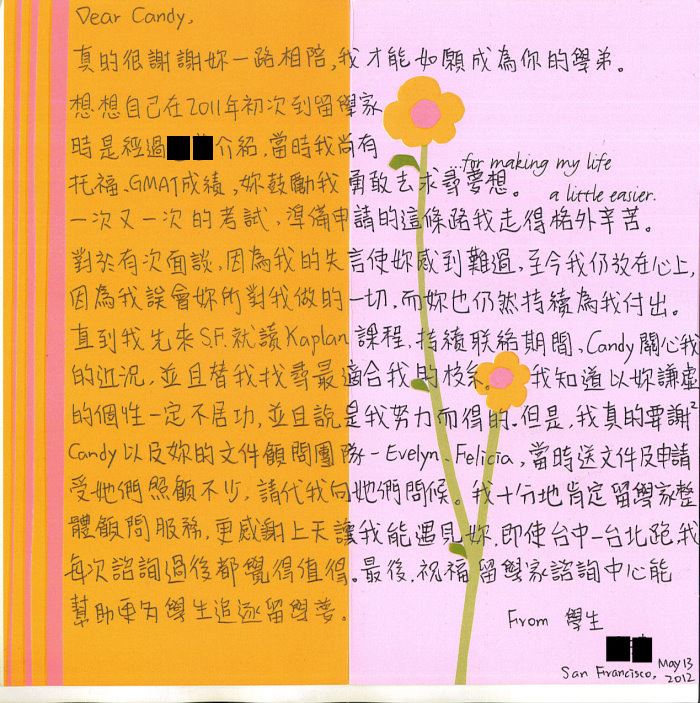 Dear Candy,
真的很謝謝妳一路相陪,我才能如願成為你的學弟。
想想自己在2011年初次到留學家
時是經過 介紹,當時我尚有
...for making my life
托福、GMAT成績,妳鼓勵我勇敢去求尋夢想。
a little easier.
一次又一次的考試,準備申請的這條路我走得格外辛苦。
對於有次面談,因為我的失言使妳感到難過,至今我仍放在心上,
因為我誤會妳所對我做的一切,而妳也仍然持續為我付出。
直到我先來S.F.就讀Kaplan課程,持續联絡期間,Candy關心我
的近況,並且替我找尋最適合我的校系。我知道以妳謙虛
的個性一定不居功,並且說是我努力而得的.但是,我真的要謝²
Candy以及妳的文件顧問團隊-Evelyn、Felicia,當時送文件及申請
受她們照顧不少,請代我向她們問候。我十分地肯定留學家整
體顧問服務,更感謝上天讓我能遇見妳,即使台中-台北跑,我
每次諮詢過後都覺得值得。最後,祝福留學家諮詢中心能
幫助更多學生追逐留學夢。
From 學生
San Francisco, May 13
2012